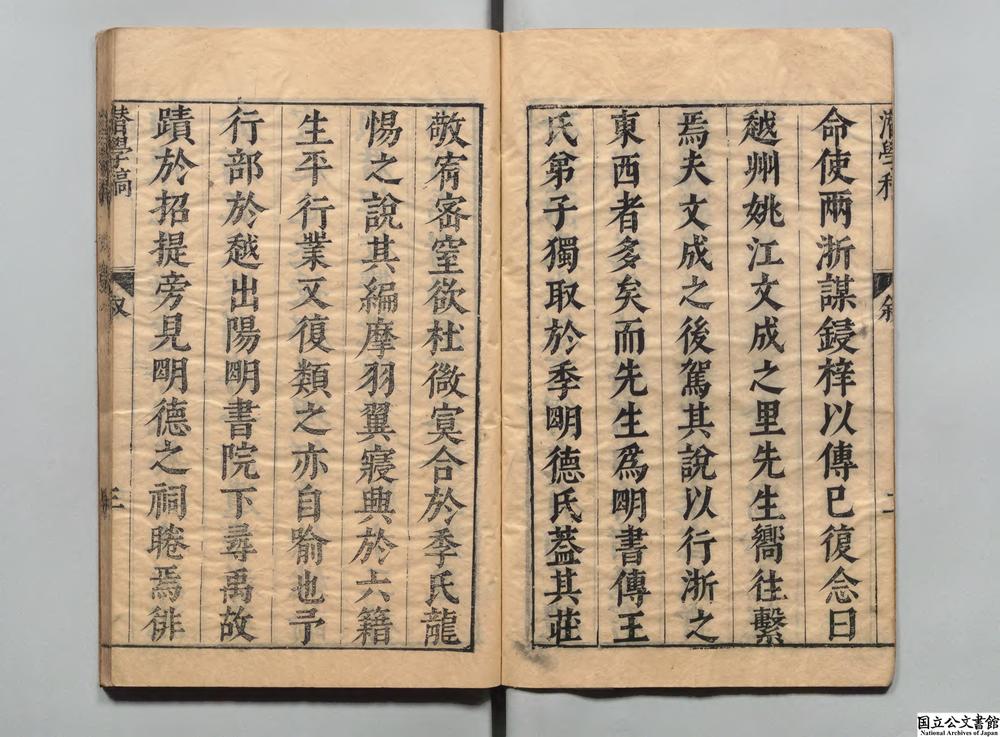 命使兩浙謀鋟梓以傳已復念曰
越州姚江文成之里先生嚮往繫
焉夫文成之後駕其說以行浙之
東西者多矣而先生爲明書傳王
氏弟子獨取於季明德氏葢其莊
敬宥密窒欲杜微冥合於季氏龍
惕之說其編摩羽翼寢興於六籍
生平行業又復類之亦自喻也予
行部於越出陽明書院下尋禹故
蹟於招提旁見明德之祠睠焉徘
潛學稿
三
二
国立公文書館
National Archives of Japan